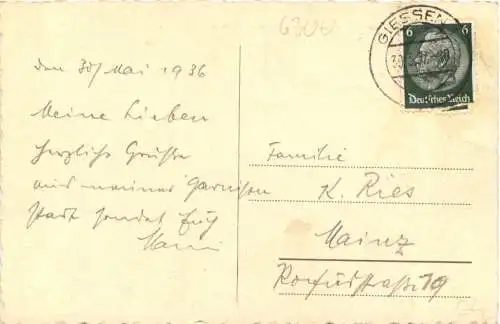 6300
GIESSEN
6 6
Deutsches Reich
den 30/ Mai 1936
Meine Lieben
herzliche Grüße
aus meiner Garnison
stadt sendet Euch
Familie
K. Ries
Mainz
19